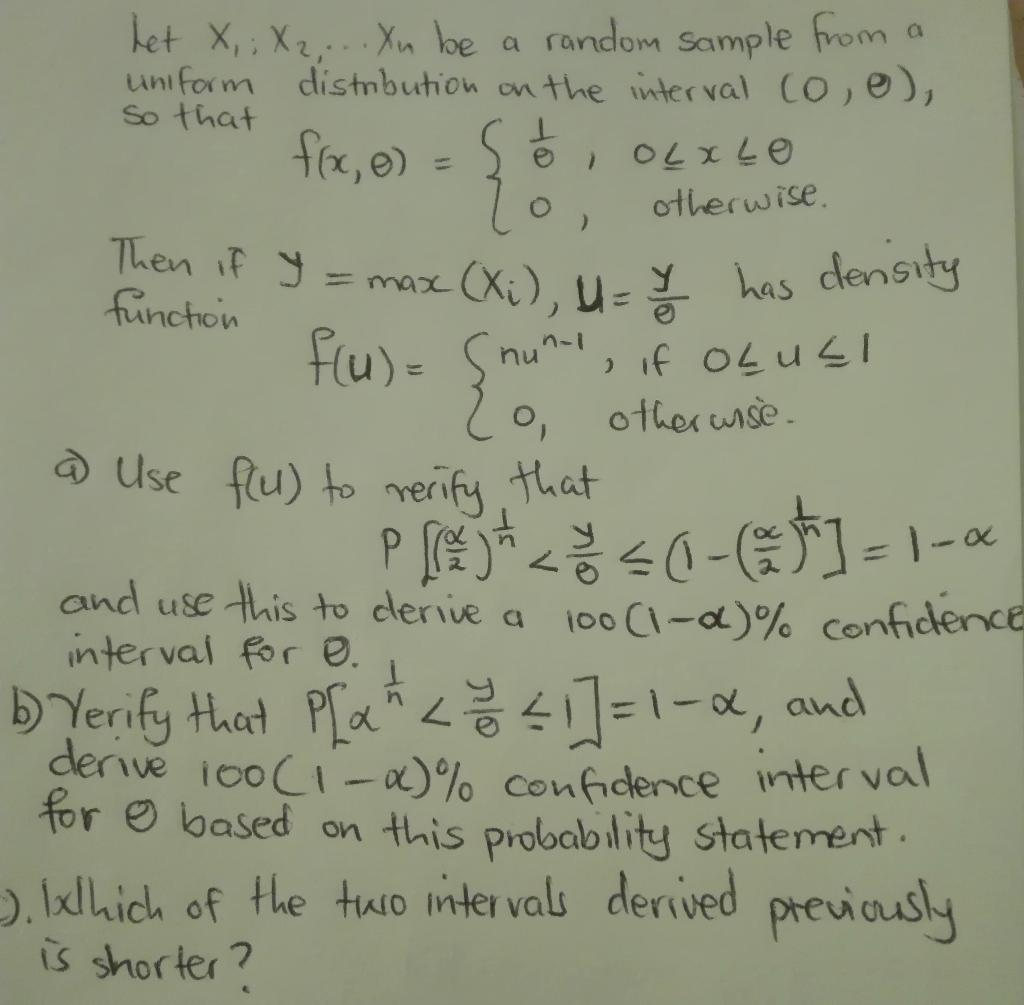 Let X₁; X₂,... Xn be a random sample from a
uniform distribution on the interval (0, θ),
so that
f(x, θ) = { 1/θ , 0 ≤ x ≤ θ
0 , otherwise.
Then if y = max (Xi), U = y/θ has density
function
f(u) = { nu^(n-1) , if 0 ≤ u ≤ 1
0, otherwise.
a) Use f(u) to verify that
P [(α/2)^(1/n) < y/θ ≤ (1 - (α/2)^(1/n)] = 1 - α
and use this to derive a 100(1-α)% confidence
interval for θ.
b) Verify that P[α^(1/n) < y/θ ≤ 1] = 1 - α, and
derive 100(1-α)% confidence interval
for θ based on this probability statement.
). Which of the two intervals derived previously
is shorter?